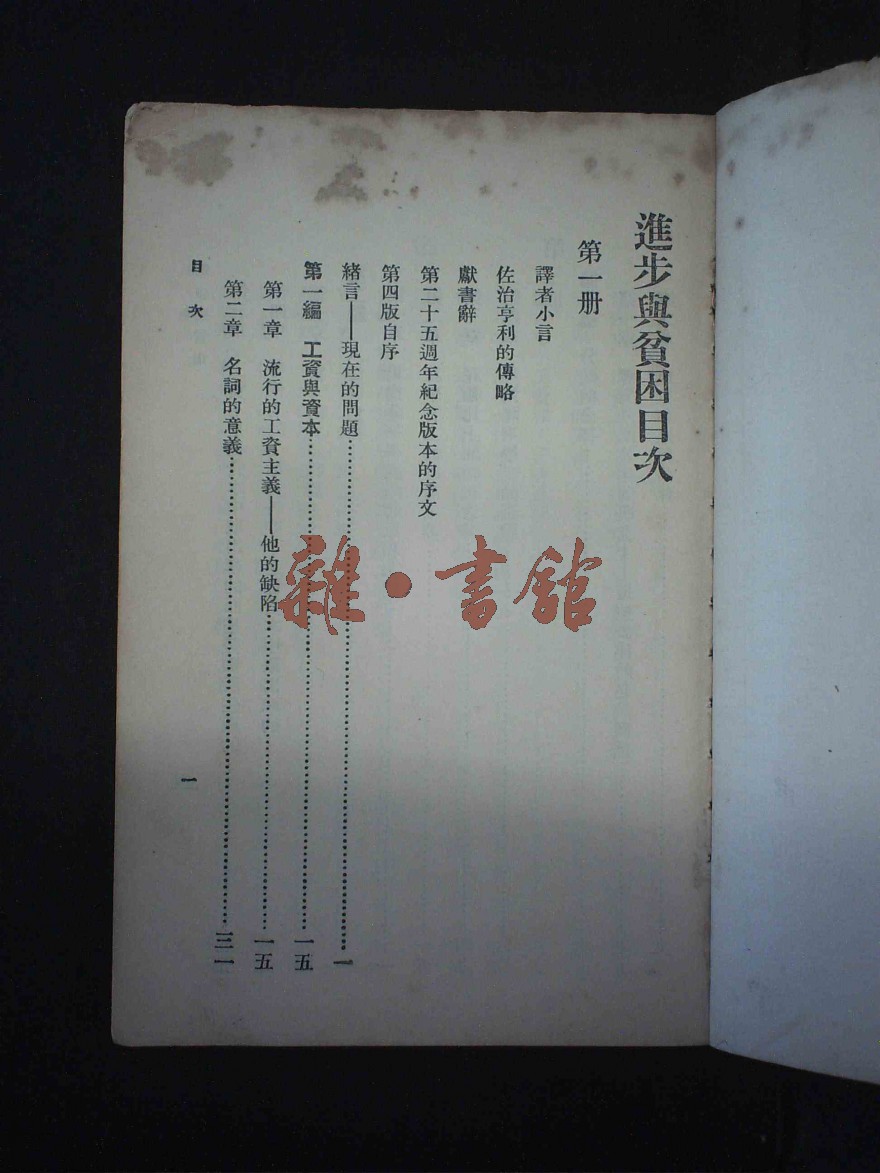 進步與貧困目次
第一册
譯者小言
佐治亨利的傳略
獻書辭
第二十五週年紀念版本的序文
第四版自序
緒言——現在的問題…………一
第一編 工資與資本…………一五
第一章 流行的工資主義——他的缺陷…………一五
第二章 名詞的意義…………三一
目次
一
雜·書館